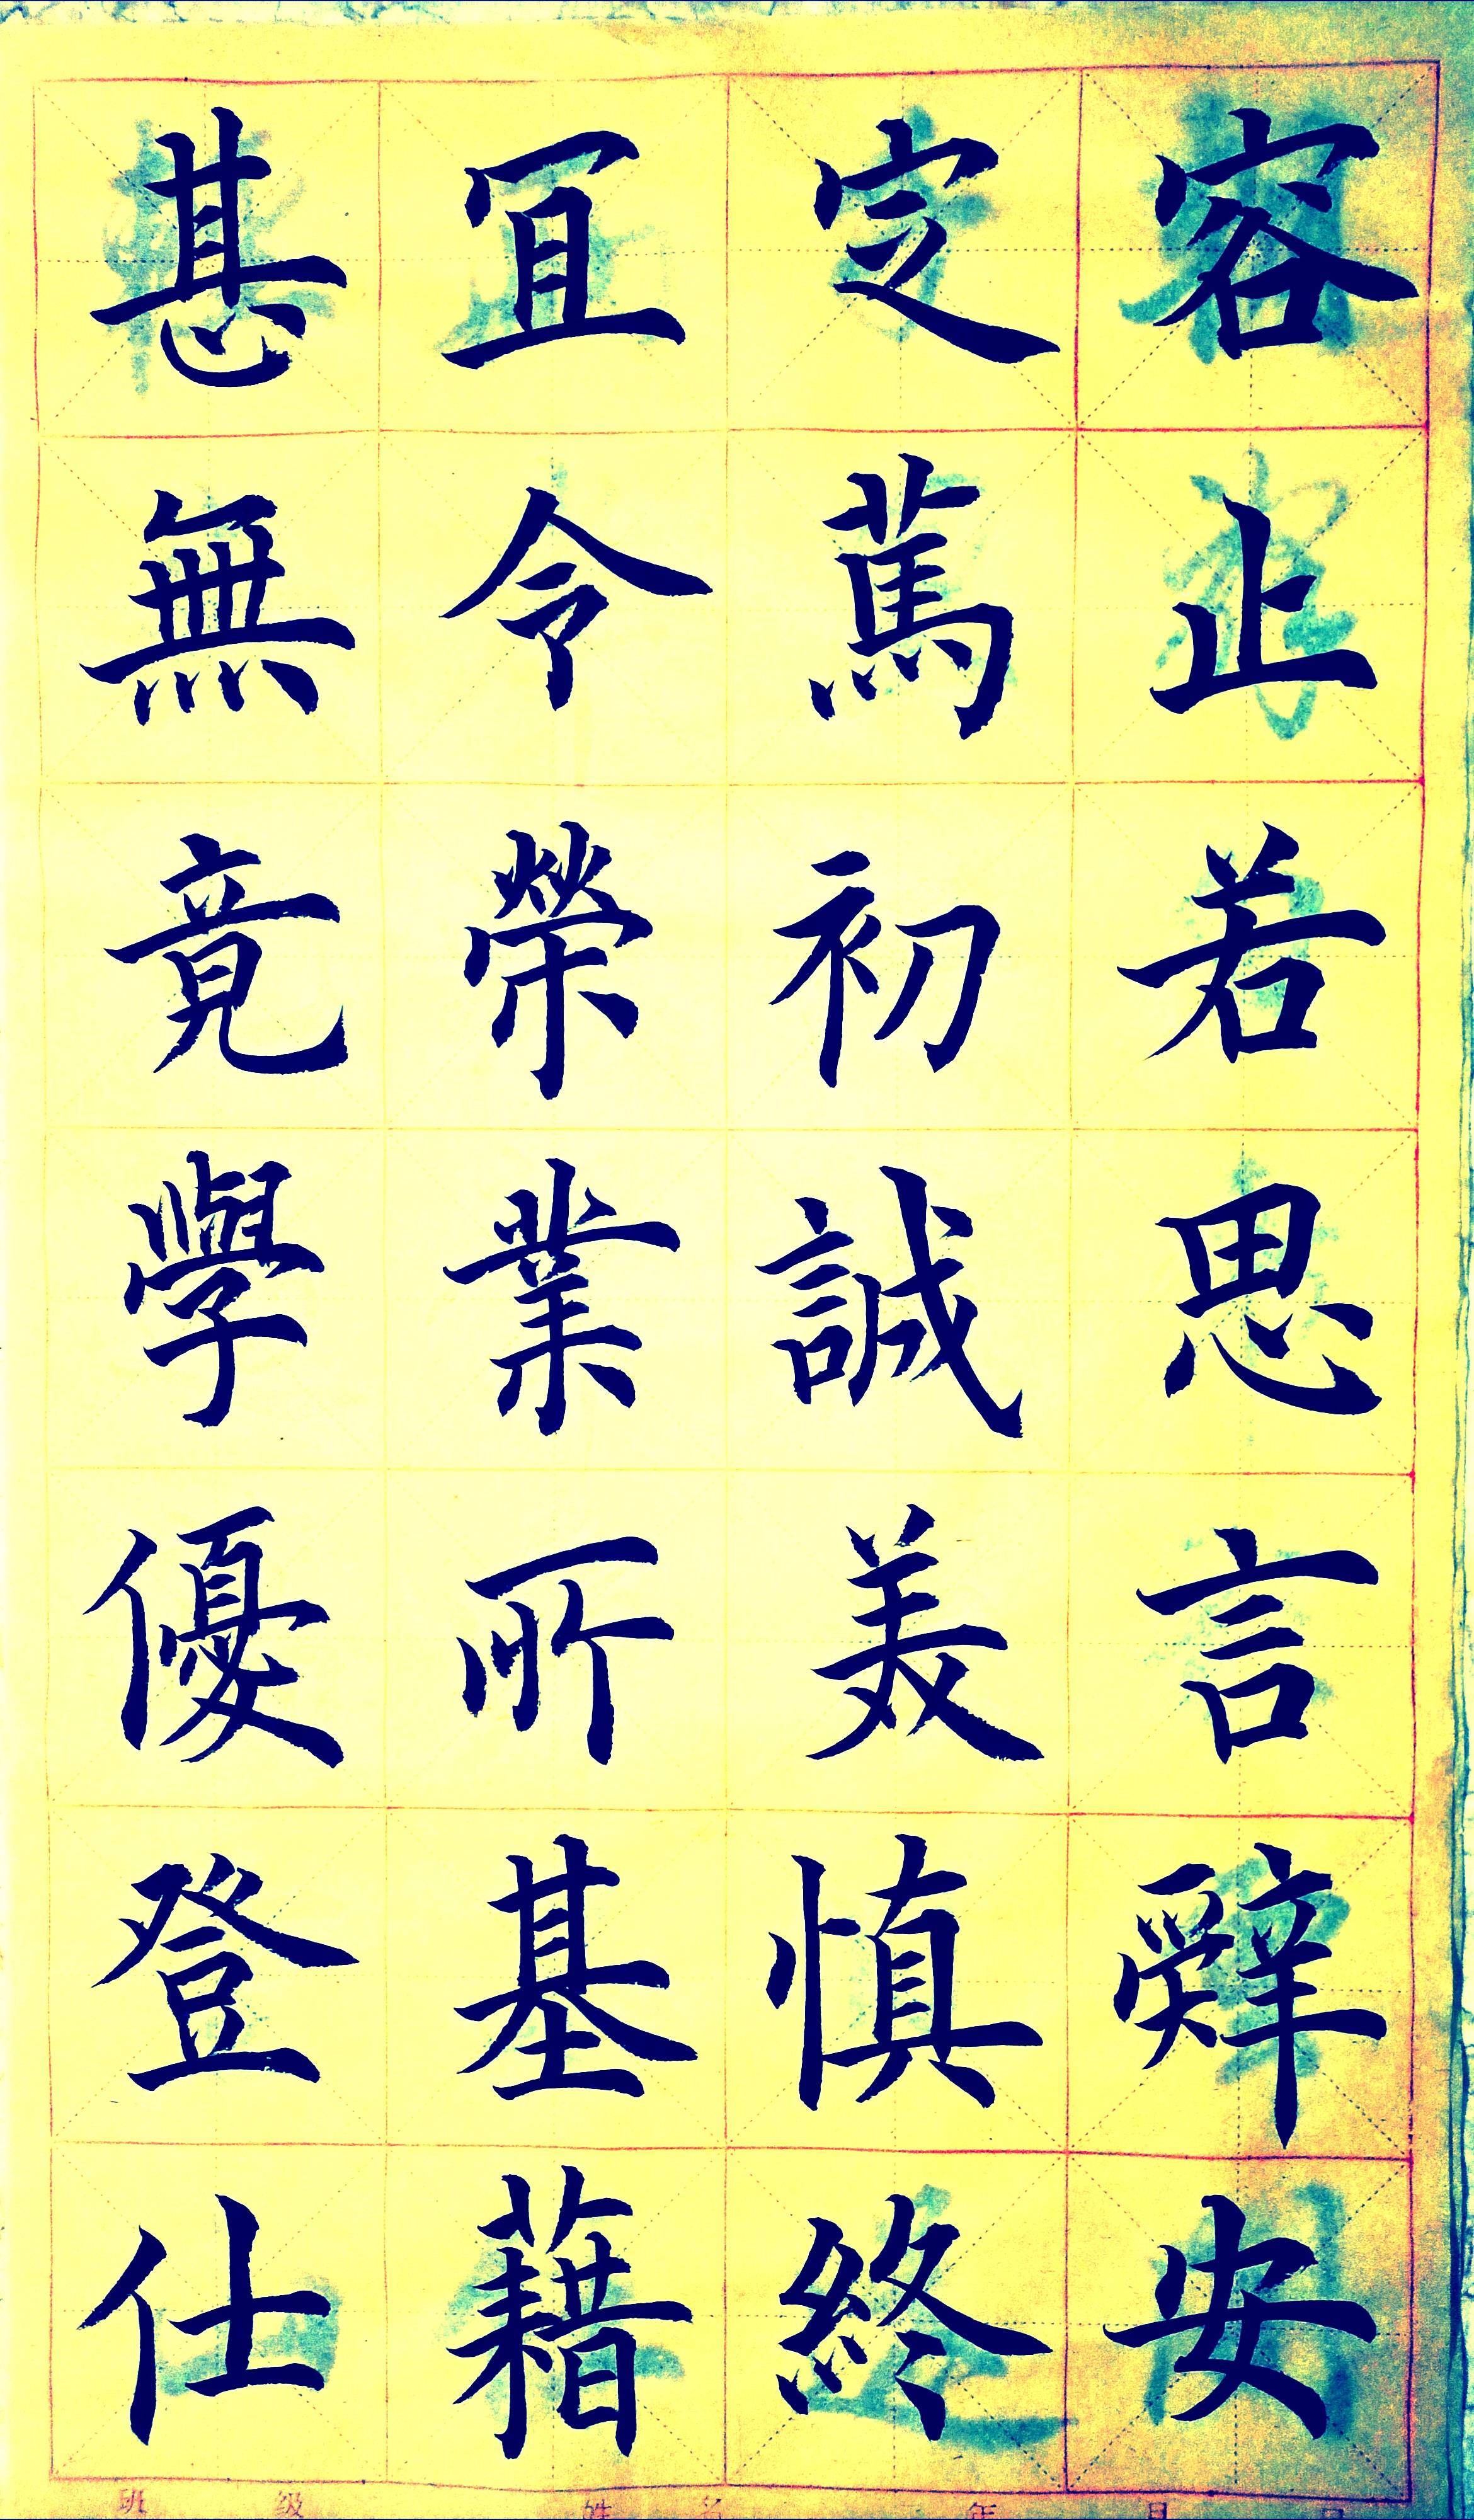 容止若思言辭安
定篤初誠美慎終
宜令榮業所基藉
甚無竟學優登仕
班 级 姓 名 年 月 日